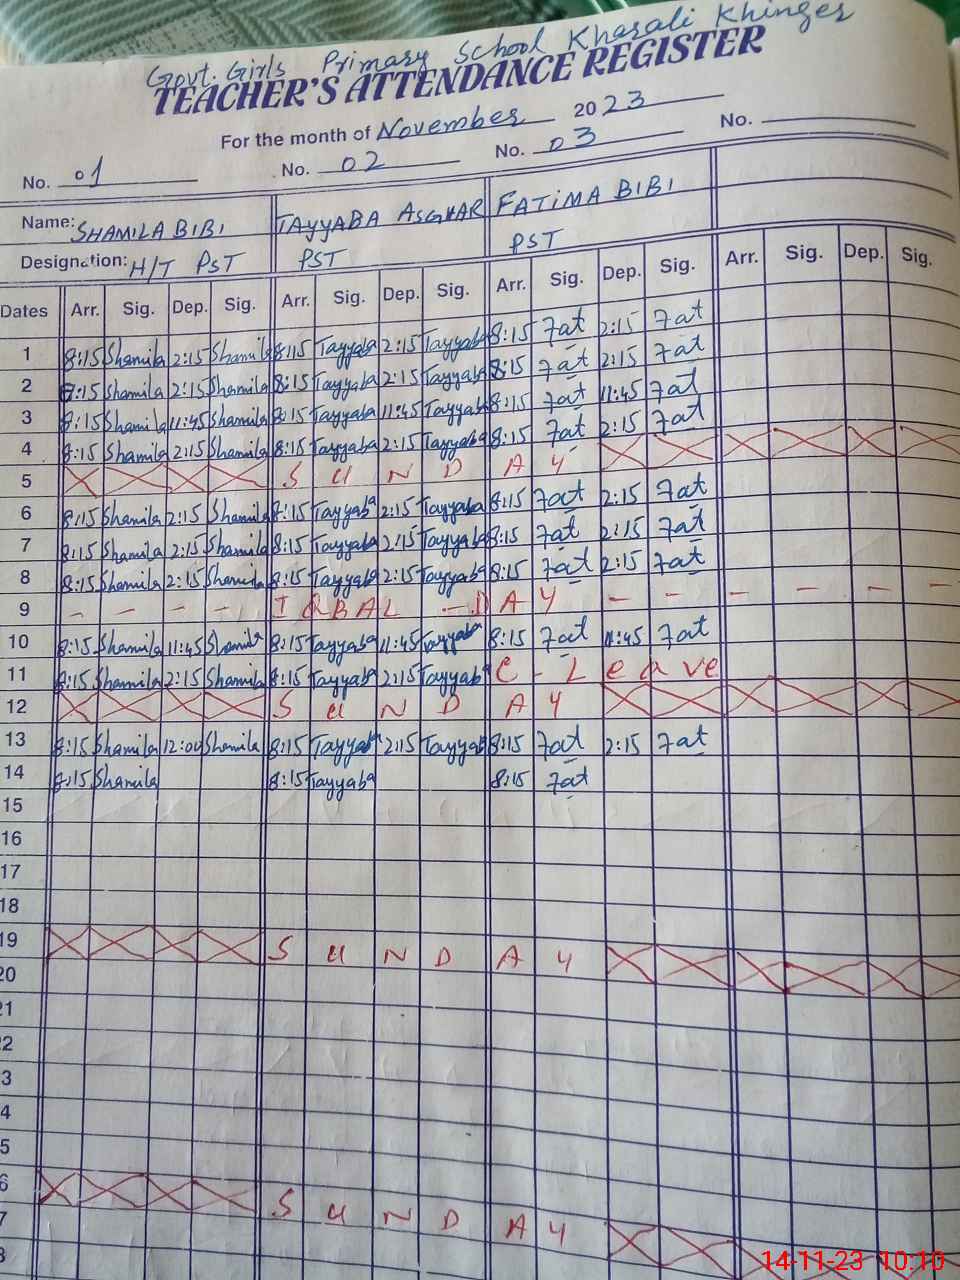 Govt. Girls Primary School Kharali Khinger
TEACHER'S ATTENDANCE REGISTER
For the month of November 2023
No. 01 No. 02 No. 03 No.
Name: SHAMILA BIBI TAYYABA ASGHAR FATIMA BIBI
Designation: H/T PST PST PST
Dates Arr. Sig. Dep. Sig. Arr. Sig. Dep. Sig. Arr. Sig. Dep. Sig. Arr. Sig. Dep. Sig.
1 8:15 Shamila 2:15 Shamila 8:15 Tayyaba 2:15 Tayyaba 8:15 Fat 2:15 Fat
2 8:15 Shamila 2:15 Shamila 8:15 Tayyaba 2:15 Tayyaba 8:15 Fat 2:15 Fat
3 8:15 Shamila 11:45 Shamila 8:15 Tayyaba 11:45 Tayyaba 8:15 Fat 11:45 Fat
4 8:15 Shamila 2:15 Shamila 8:15 Tayyaba 2:15 Tayyaba 8:15 Fat 2:15 Fat
5 S U N D A Y
6 8:15 Shamila 2:15 Shamila 8:15 Tayyaba 2:15 Tayyaba 8:15 Fat 2:15 Fat
7 8:15 Shamila 2:15 Shamila 8:15 Tayyaba 2:15 Tayyaba 8:15 Fat 2:15 Fat
8 8:15 Shamila 2:15 Shamila 8:15 Tayyaba 2:15 Tayyaba 8:15 Fat 2:15 Fat
9 - - - - IQBAL - DAY - - - - - -
10 8:15 Shamila 11:45 Shamila 8:15 Tayyaba 11:45 Tayyaba 8:15 Fat 11:45 Fat
11 8:15 Shamila 2:15 Shamila 8:15 Tayyaba 2:15 Tayyaba C - Leave
12 S U N D A Y
13 8:15 Shamila 12:00 Shamila 8:15 Tayyaba 2:15 Tayyaba 8:15 Fat 2:15 Fat
14 8:15 Shamila 8:15 Tayyaba 8:15 Fat
15
16
17
18
19 S U N D A Y
20
21
2
3
4
5
6 S U N D A Y
7
8
14-11-23 10:10